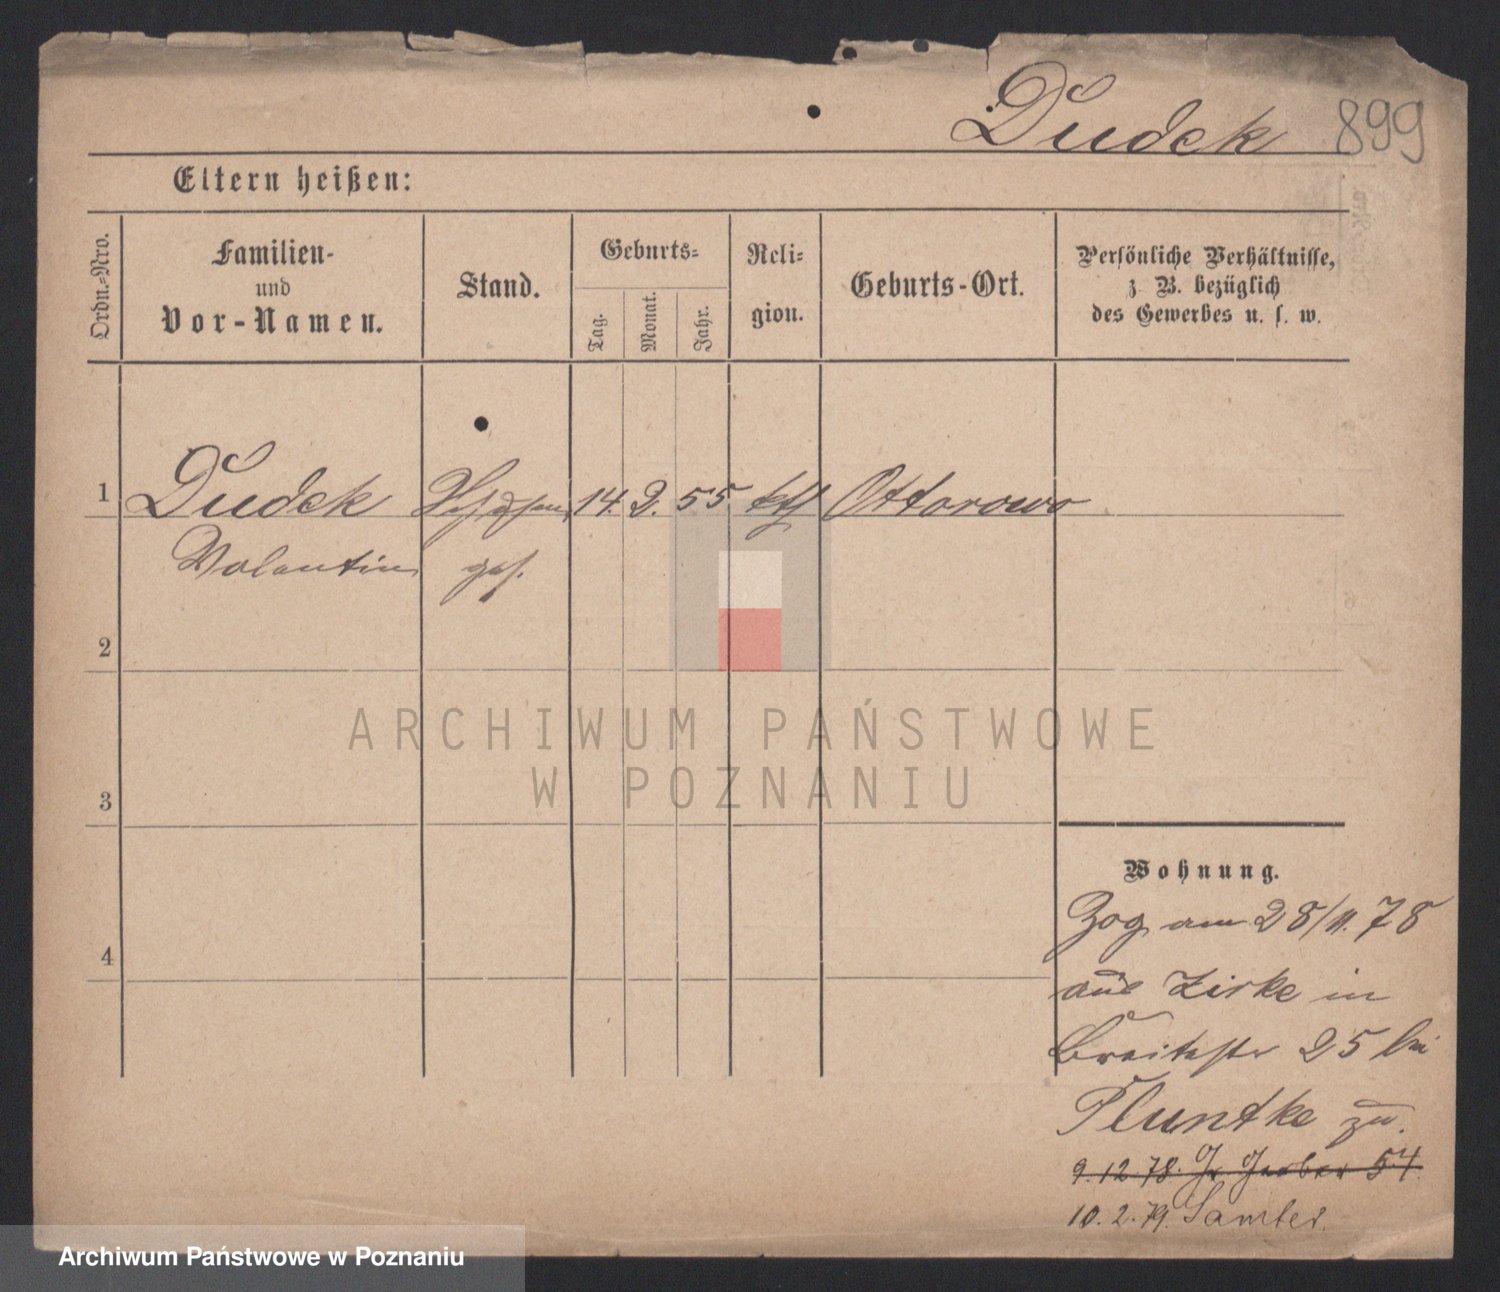 Dudek 899
Eltern heißen:
Ordn.-Nro.
Familien-
und
Vor-Namen.
Stand.
Geburts-
Tag.
Monat.
Jahr.
Reli-
gion.
Geburts-Ort.
Persönliche Verhältnisse,
z. B. bezüglich
des Gewerbes u. s. w.
1 Dudek 14. 2. 55 kth Ottorowo
Valentin ges.
2
3
4
Wohnung.
Zog am 28/11.78
aus Zirke in
Breitestr 25 bei
Pluntke zu.
9.12.78. Gr Gerber 54.
10.2.79. Samter.
ARCHIWUM PAŃSTWOWE
W POZNANIU
Archiwum Państwowe w Poznaniu